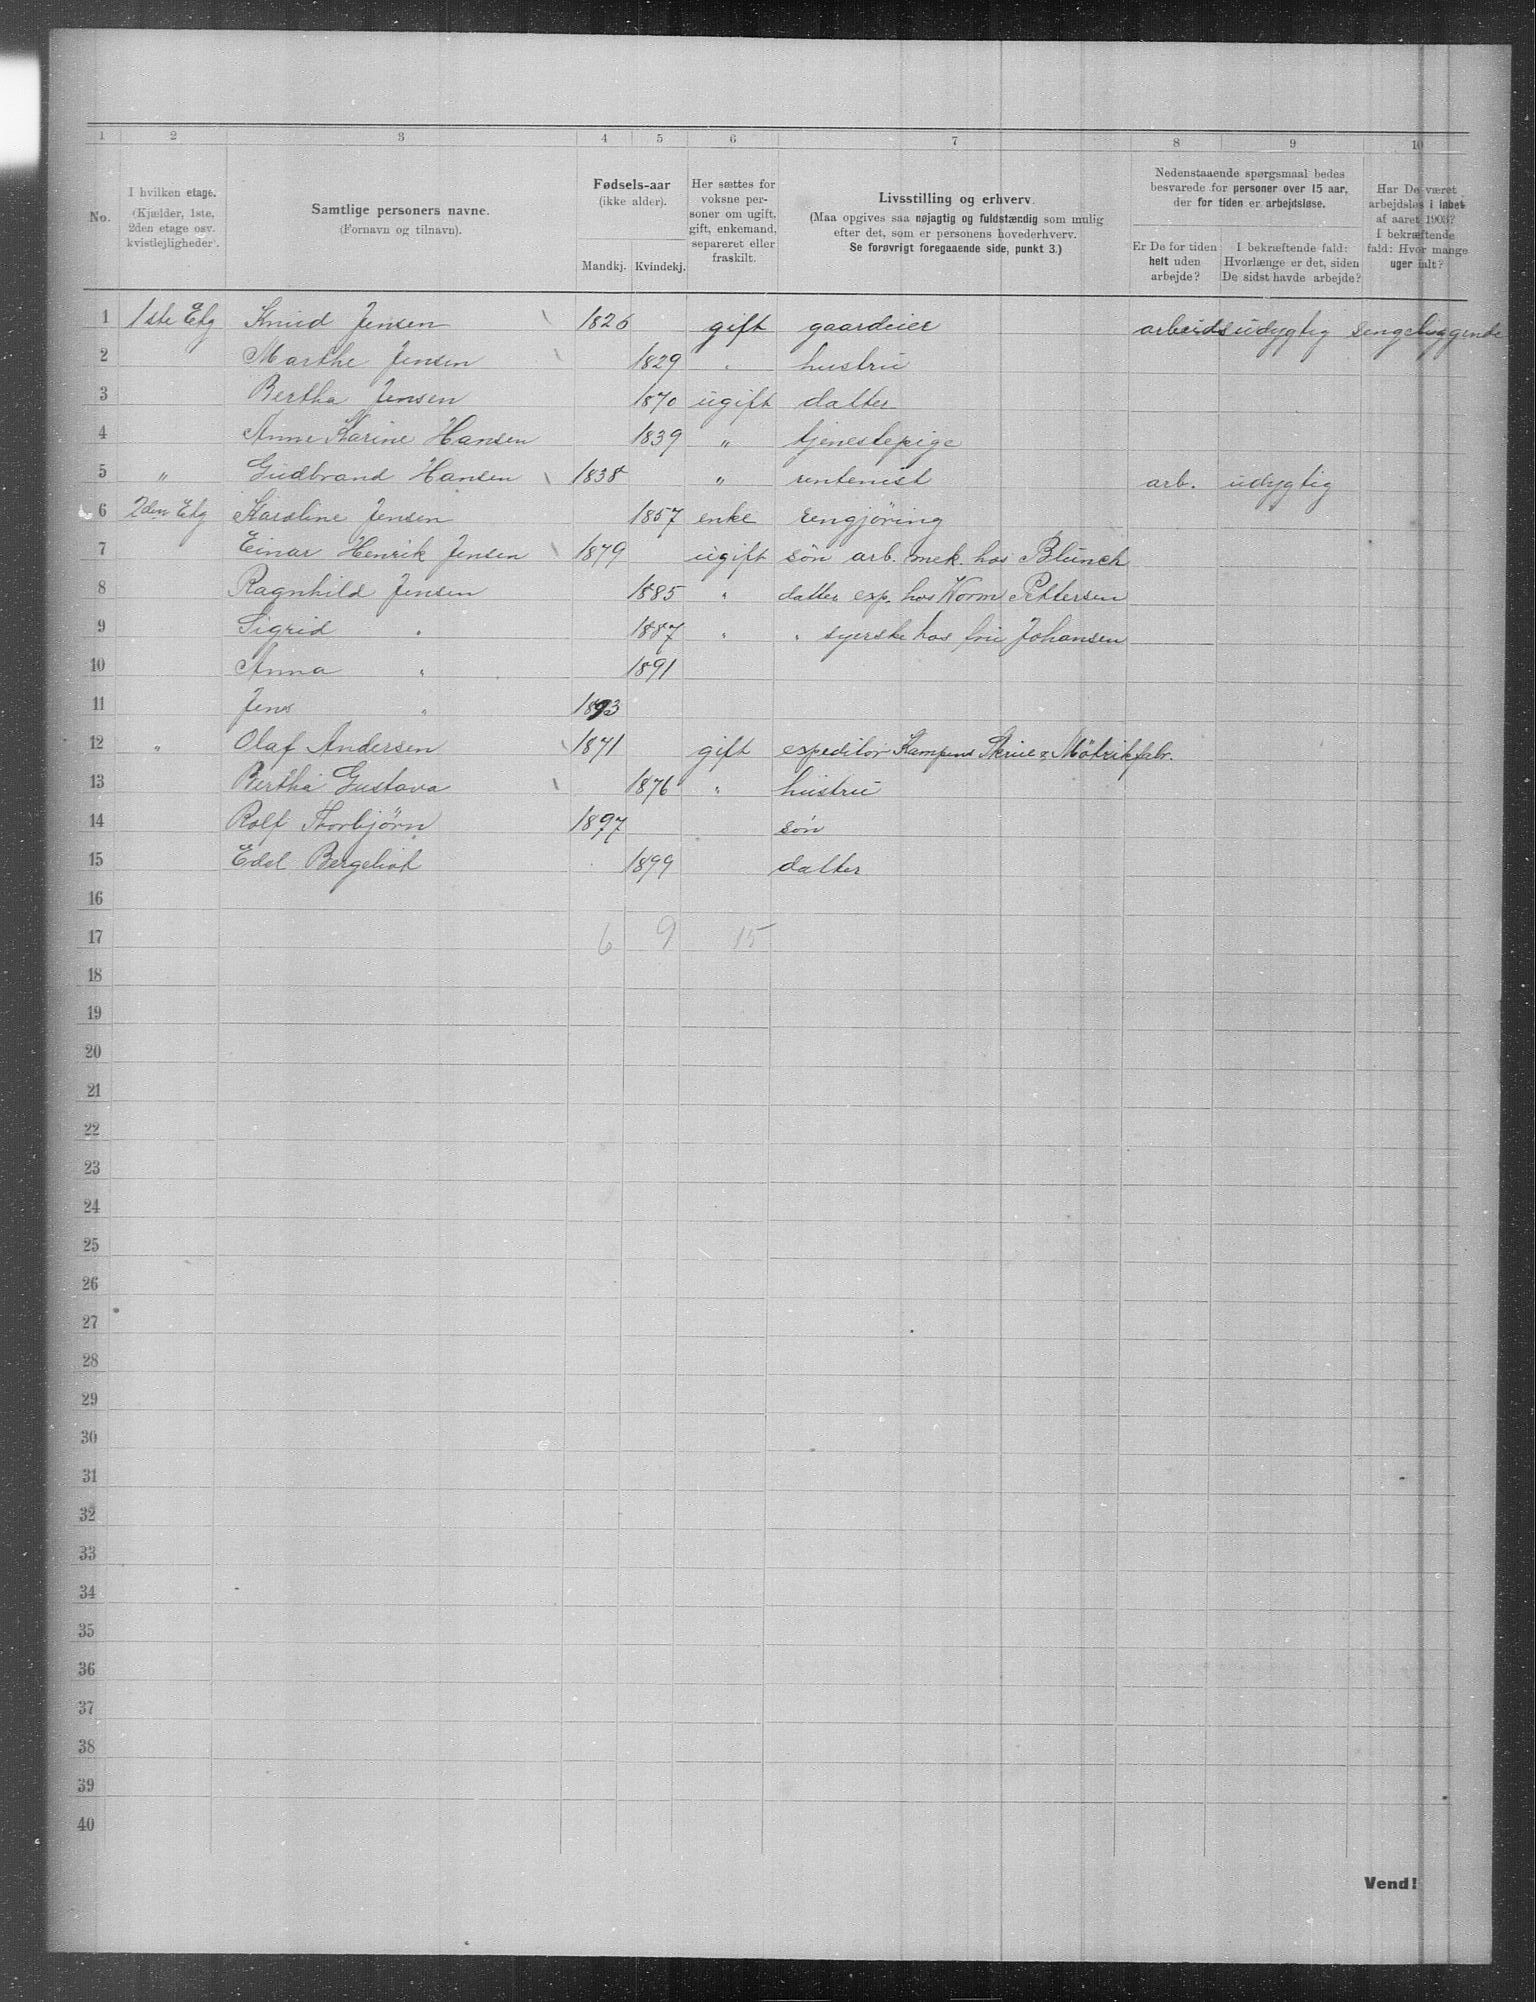 1 2 3 4 5 6 7 8 9 10
No.
I hvilken etage.
(Kjælder, 1ste,
2den etage osv.
kvistlejligheder).
Samtlige personers navne.
(Fornavn og tilnavn).
Fødsels-aar
(ikke alder).
Mandkj. Kvindekj.
Her sættes for
voksne per-
soner om ugift,
gift, enkemand,
separeret eller
fraskilt.
Livsstilling og erhverv.
(Maa opgives saa nøjagtig og fuldstændig som mulig
efter det, som er personens hovederhverv.
Se forøvrigt foregaaende side, punkt 3.)
Nedenstaaende spørgsmaal bedes
besvarede for personer over 15 aar,
der for tiden er arbejdsløse.
Er De for tiden
helt uden
arbejde?
I bekræftende fald:
Hvorlænge er det, siden
De sidst havde arbejde?
Har De været
arbejdsløs i løbet
af aaret 1903?
I bekræftende
fald: Hvor mange
uger ialt?
1 1ste Etg Knud Jensen 1826 gift gaardeier arbeidsudygtig sengeliggende
2 Marthe Jensen 1829 " hustru
3 Bertha Jensen 1870 ugift datter
4 Anne Karine Hansen 1839 " tjenestepige
5 " Gudbrand Hansen 1838 " rentenist arb. udygtig
6 2den Etg Karoline Jensen 1857 enke rengjöring
7 Einar Henrik Jensen 1879 ugift sön arb. mek. hos Blunck
8 Ragnhild Jensen 1885 " datter exp. hos Worm Pettersen
9 Sigrid " 1887 " " syerske hos fru Johansen
10 Anna " 1891
11 Jens " 1893
12 " Olaf Andersen 1871 gift expeditör Kampens Skrue & Mötrikfabr.
13 Bertha Gustava 1876 " hustru
14 Rolf Thorbjörn 1897 sön
15 Edel Bergeliot 1899 datter
16
17 6 9 15
18
19
20
21
22
23
24
25
26
27
28
29
30
31
32
33
34
35
36
37
38
39
40
Vend!